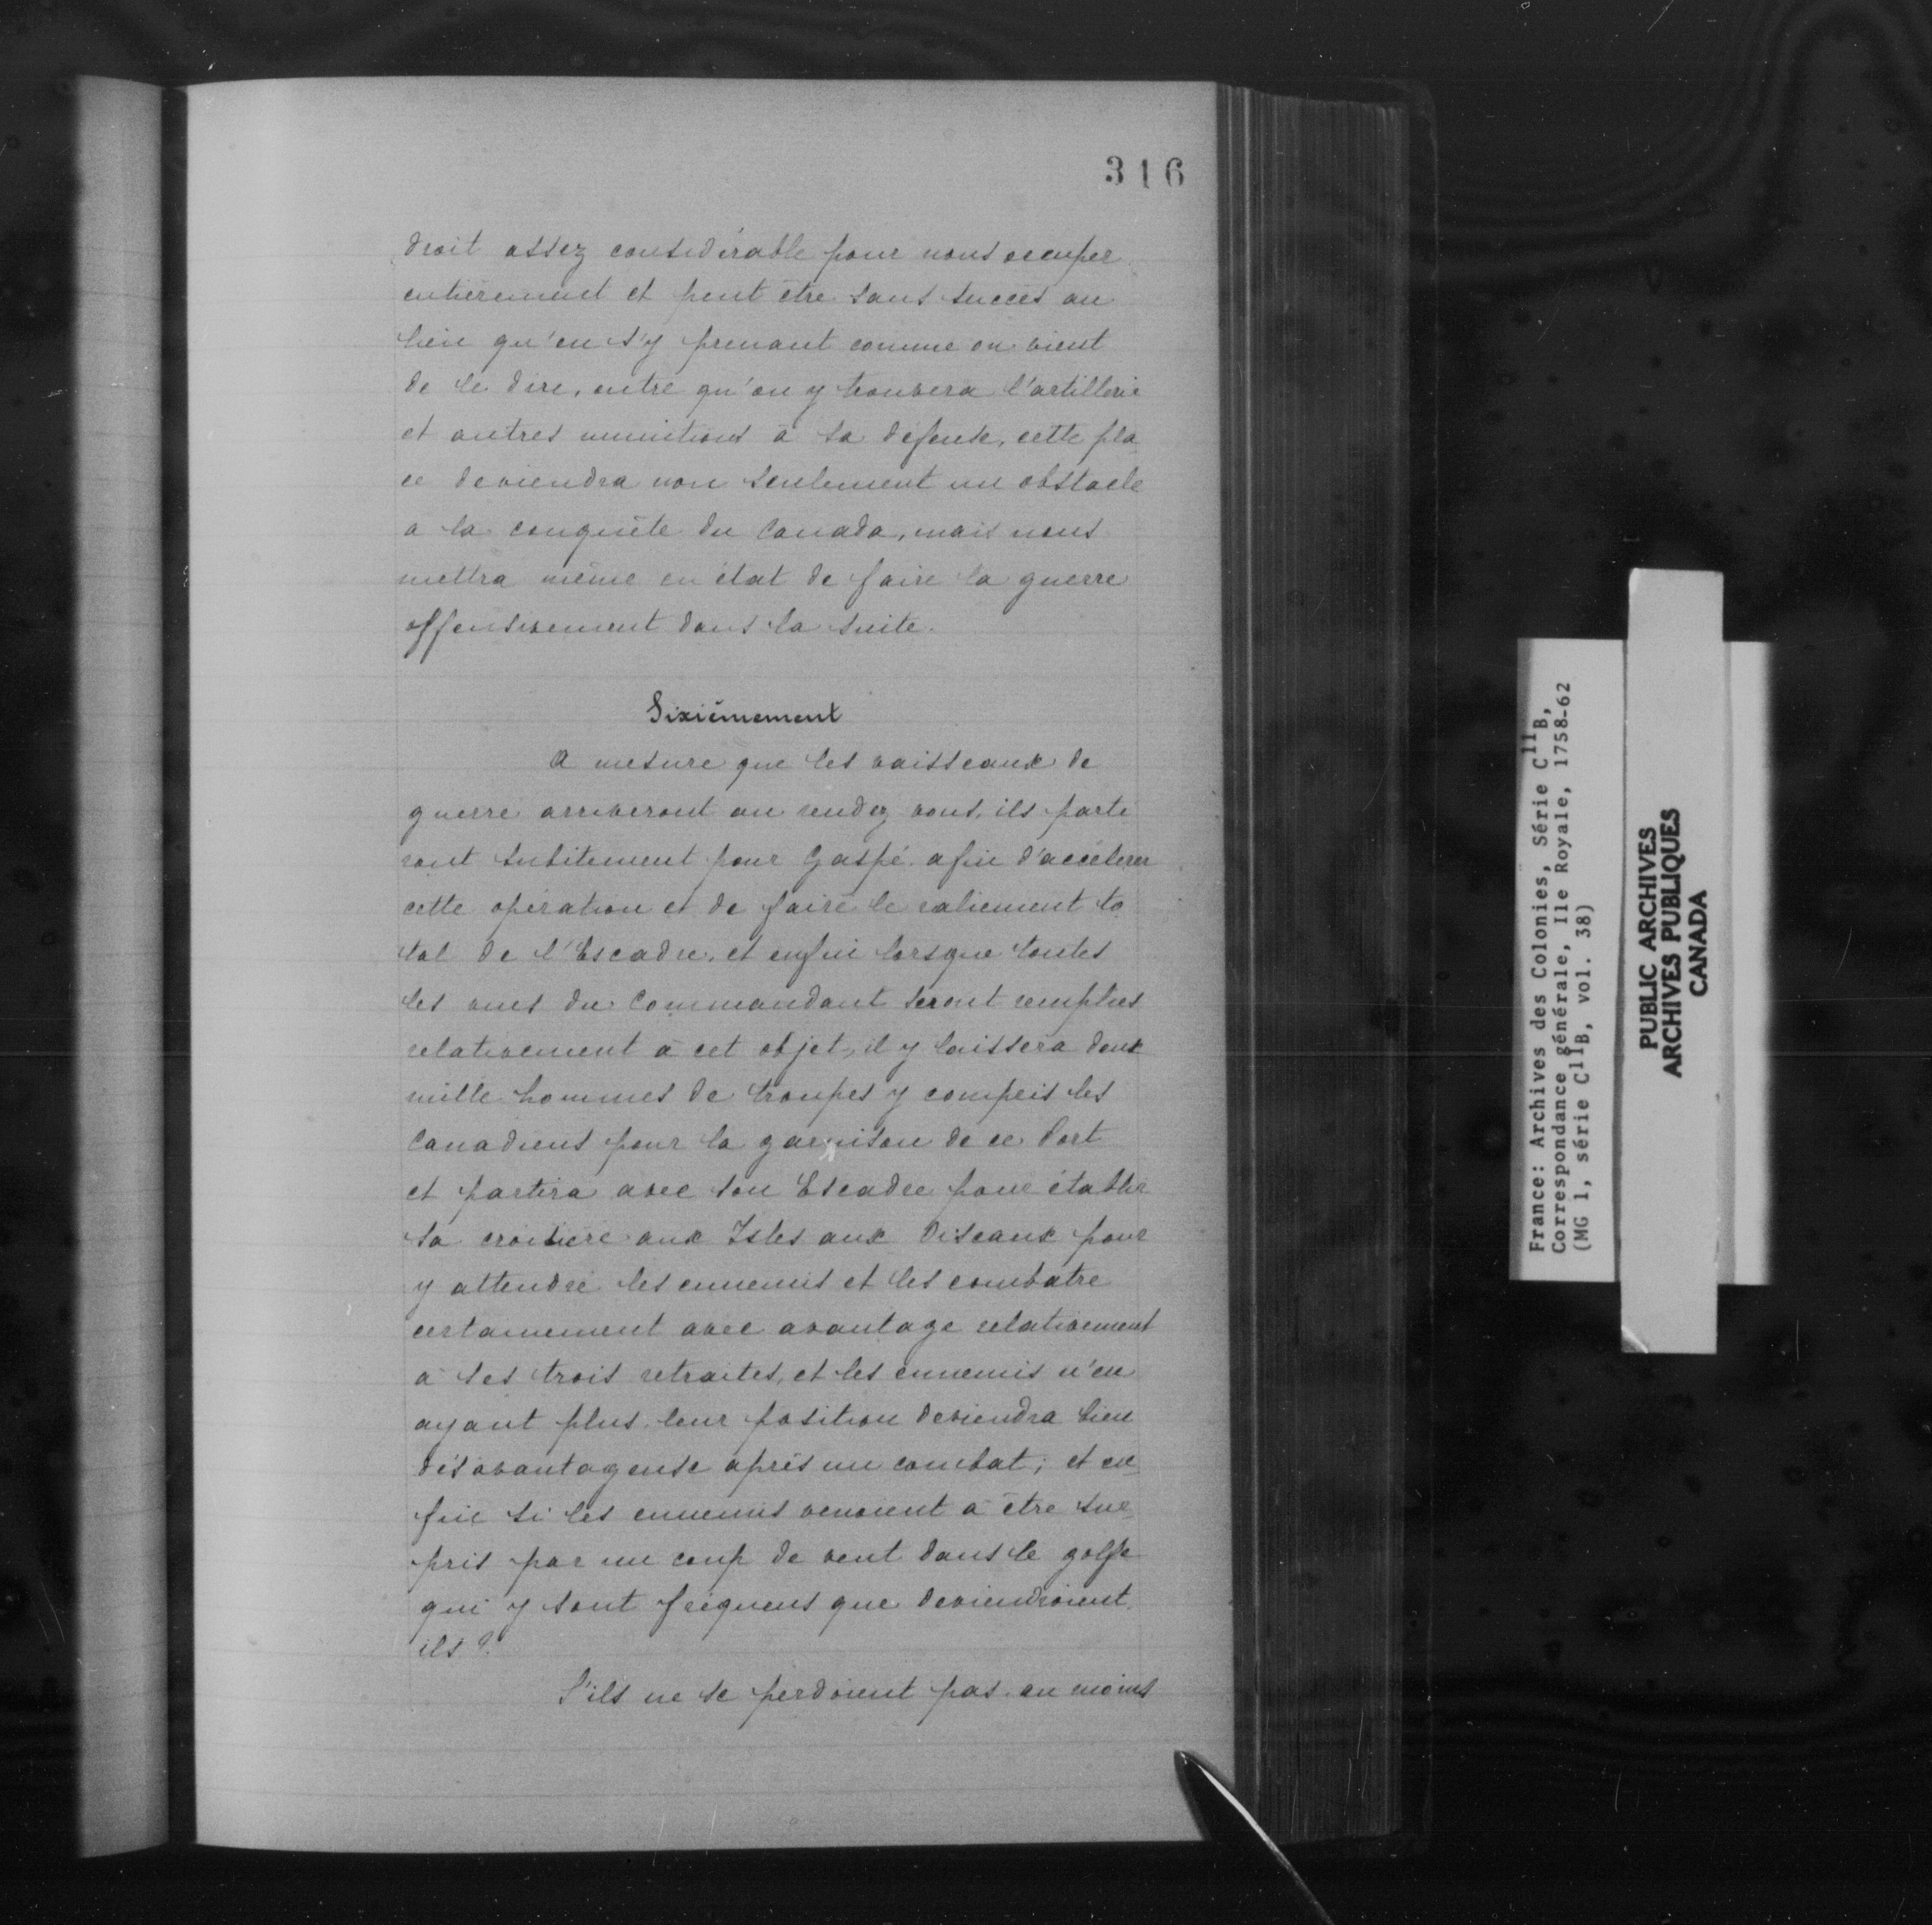 316
droit assez considérable pour nous occuper
entièrement et peut être sans succès au
lieu qu'en s'y prenant comme on vient
de le dire, outre qu'on y trouvera l'artillerie
et autres munitions à sa défense, cette pla
ce deviendra non seulement un obstacle
a la conquête du Canada, mais nous
mettra même en état de faire la guerre
offensivement dans la suite.
Sixièmement
A mesure que les vaisseaux de
guerre arriveront au rendez vous, ils parti
ront subitement pour Gaspé afin d'accélerer
cette opération et de faire le raliement to
tal de l'Escadre, et enfin lorsque toutes
les vues du Commandant seront remplies
relativement à cet objet, il y laissera deux
mille hommes de troupes y compris les
Canadiens pour la garnison de ce Port
et partira avec son Escadre pour établir
sa croisière aux Isles aux Oiseaux pour
y attendre les ennemis et les combatre
certainement avec avantage relativement
à ses trois retraites, et les ennemis n'en
ayant plus leur position deviendra bien
désavantageuse après un combat; et en-
fin si les ennemis venoient à être sur-
pris par un coup de vent dans le golfe
qui y sont fréquens que deviendroient-
ils?
S'ils ne se perdoient pas au moins
France: Archives des Colonies, Série C11B,
Correspondance générale, Ile Royale, 1758-62
(MG 1, série C11B, vol. 38)
PUBLIC ARCHIVES
ARCHIVES PUBLIQUES
CANADA